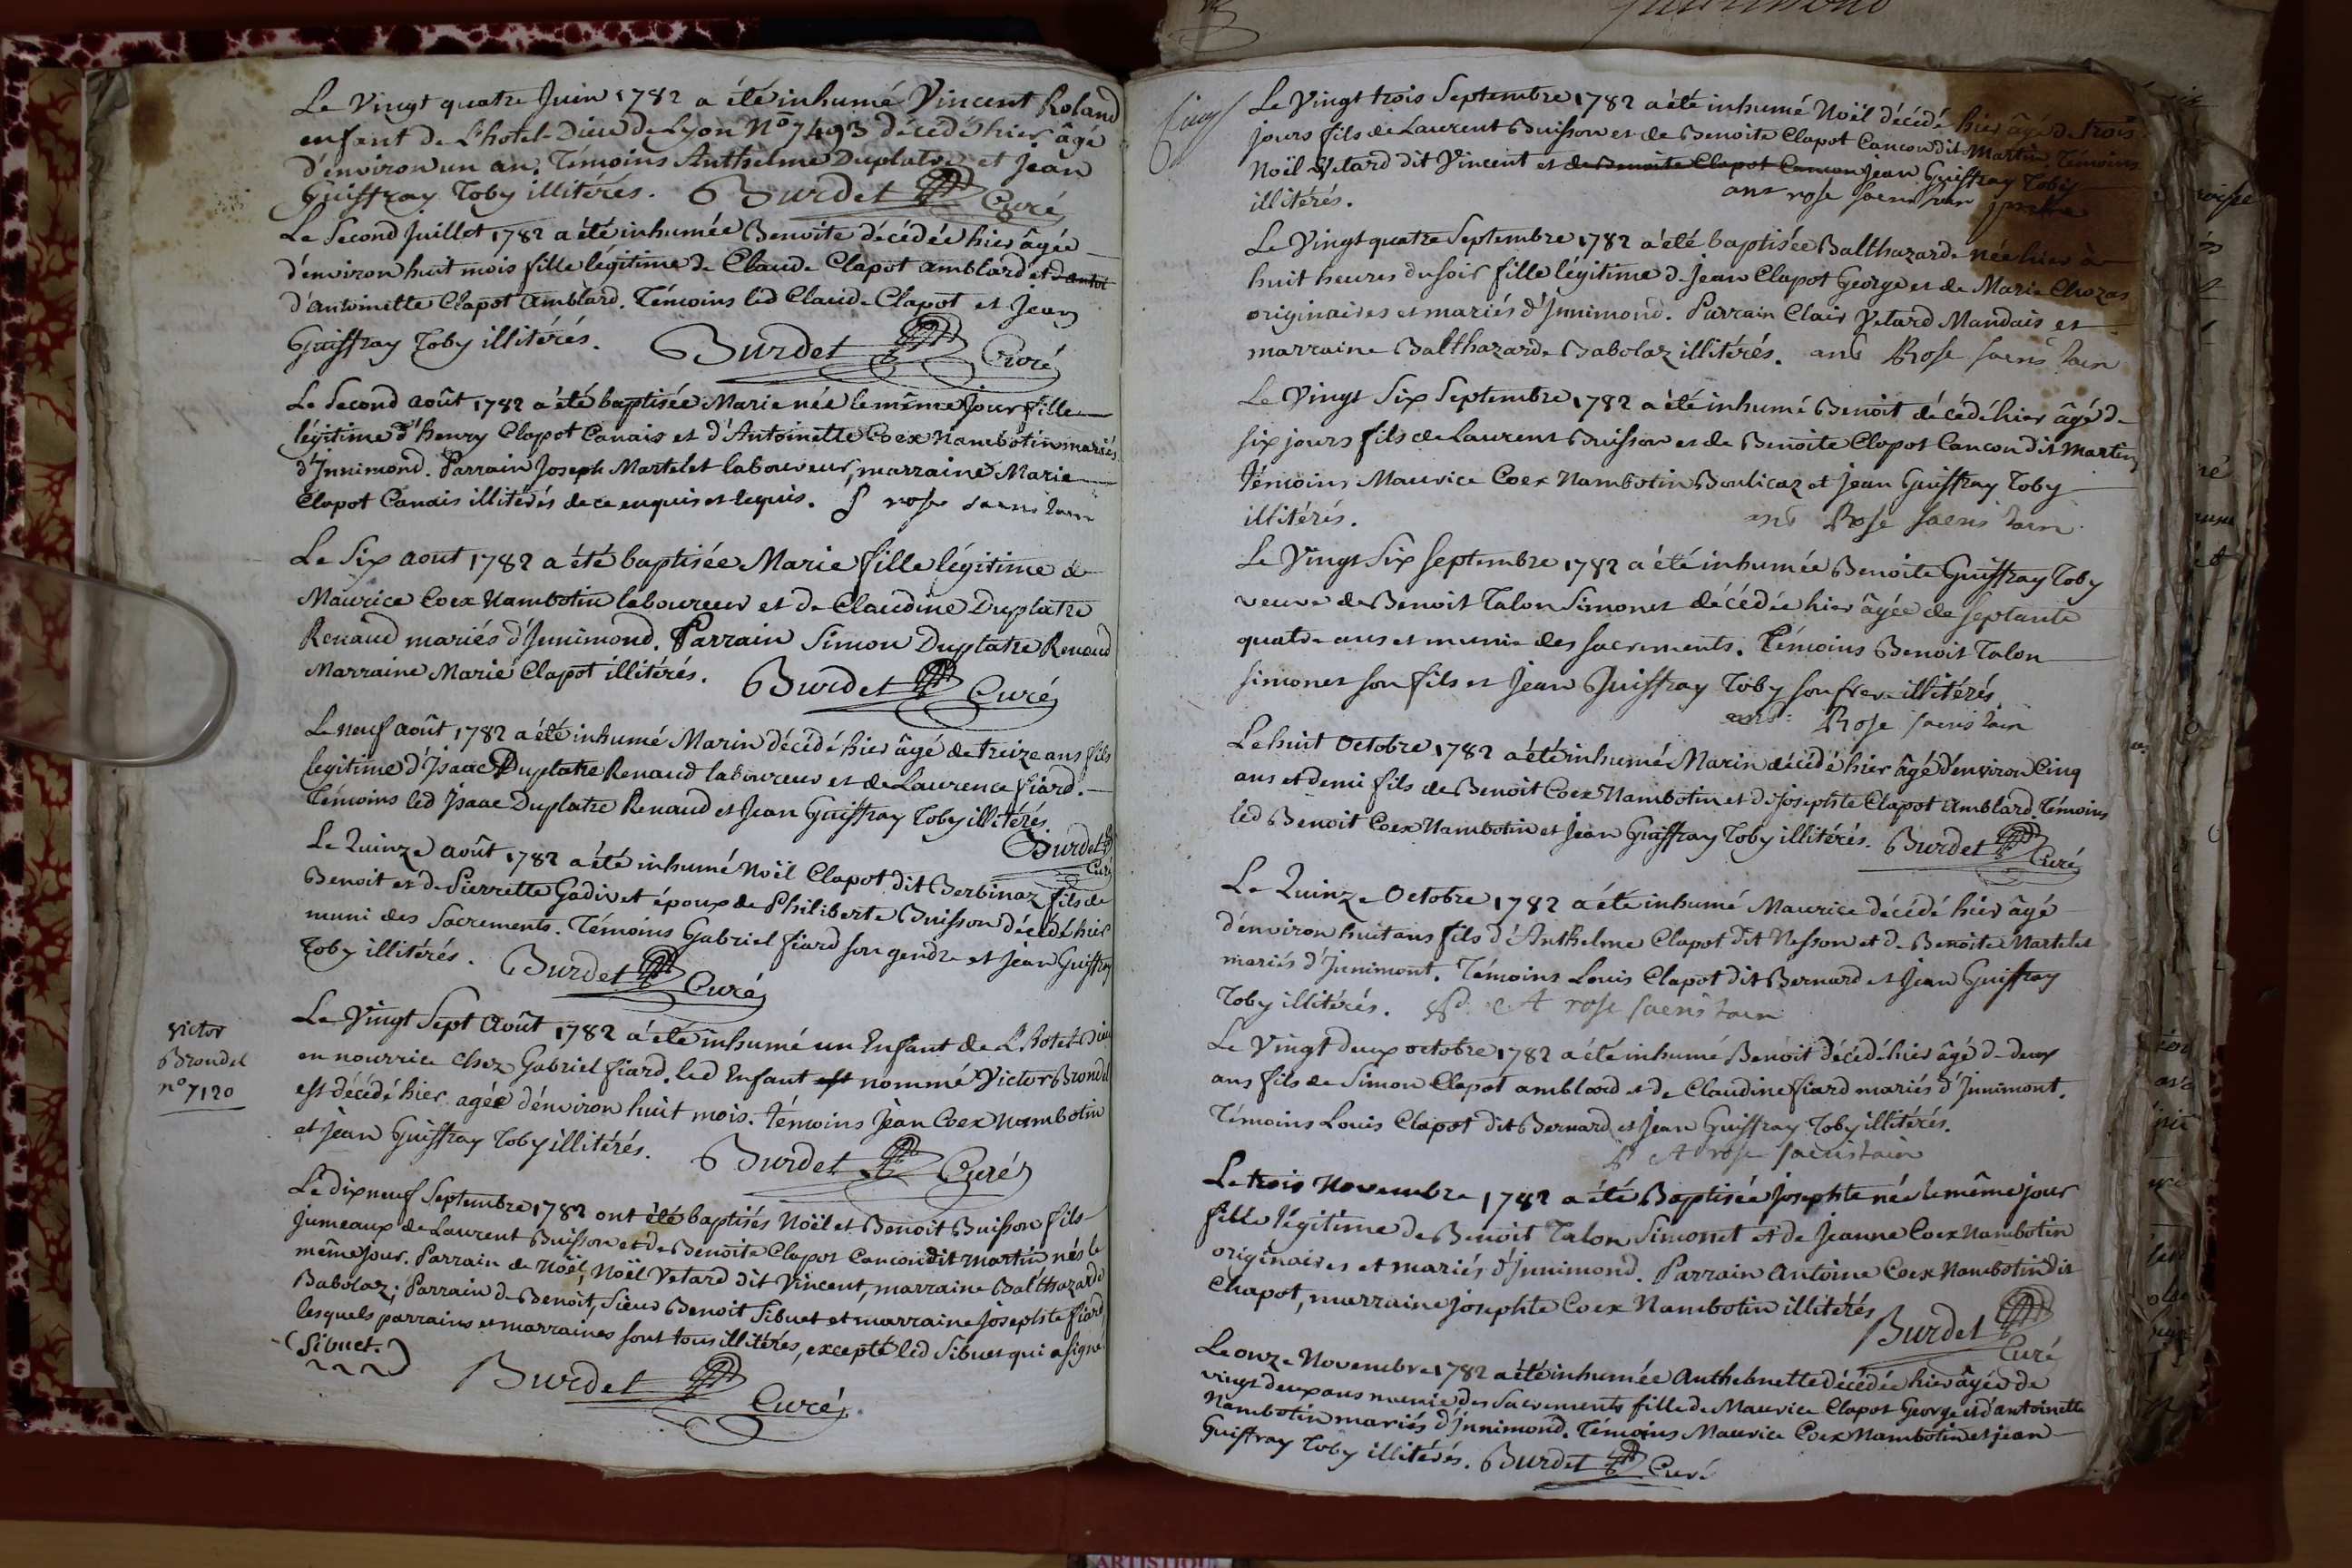 Le Vingt quatre Juin 1782 a été inhumé Vincent Roland
enfant de L'hotel-Dieu de Lyon N° 7493 décédé hier âgé
d'environ un an. Témoins Anthelme Duplatre et Jean
Guiffray Toby illitérés. Burdet Curé
Le Second Juillet 1782 a été inhumée Benoite décédée hier âgée
d'environ huit mois fille légitime de Claude Clapot amblard et d'antoi
d'Antoinette Clapot Amblard. Témoins led Claude Clapot et Jean
Guiffray Toby illitérés. Burdet Curé
Le Second août 1782 a été baptisée Marie née le même jour fille
légitime d'henry Clapot Canais et d'Antoinette Coex Nambotin mariés
d'Innimond. Parrain Joseph Martelet laboureur, marraine Marie
Clapot Canais illitérés de ce enquis et requis.
Le Six aout 1782 a été baptisée Marie fille légitime de
Maurice Coex Nambotin laboureur et de Claudine Duplatre
Renaud mariés d'Innimond. Parrain Simon Duplatre Renaud
Marraine Marie Clapot illitérés. Burdet Curé
Le neuf août 1782 a été inhumé Marin décédé hier âgé de treize ans fils
legitime d'Isaac Duplatre Renaud laboureur et de Laurence fiard.
Témoins led Isaac Duplatre Renaud et Jean Guiffray Toby illitérés.
Burdet Curé
Le Quinze août 1782 a été inhumé Noël Clapot dit Berbinaz fils de
Benoit et de Pierrette Gadivet époux de Philiberte Buisson décédé hier
muni des Sacrements. Témoins Gabriel fiard son gendre et Jean Guiffray
Toby illitérés. Burdet Curé
Victor
Brondel
n° 7120
Le Vingt Sept Août 1782 a été inhumé un Enfant de L'hotel-Dieu
en nourrice chez Gabriel fiard. led Enfant est nommé Victor Brondel
est décédé hier agée d'environ huit mois. témoins Jean Coex Nambotin
et Jean Guiffray Toby illitérés. Burdet Curé
Le dixneuf Septembre 1782 ont été baptisés Noël et Benoit Buisson fils
jumeaux de Laurent Buisson et de Benoite Clapot Cancon dit Martin nés le
même jour. Parrain de Noël, Noël Vetard dit Vincent, marraine Balthazarde
Babolaz; Parrain de Benoit, Sieur Benoit Sibuet et marraine Josephte fiard
lesquels parrains et marraines sont tous illitérés, excepté led Sibuet qui a signé
(Sibuet.)
Burdet Curé
Le Vingt trois Septembre 1782 a été inhumé Noël décédé hier âgé de trois
jours fils de Laurent Buisson et de Benoite Clapot Cancon dit Martin Témoins
Noël Vetard dit Vincent et de Benoite Clapot Cancon Jean Guiffray Toby
illitérés.
Le Vingt quatre Septembre 1782 a été baptisée Balthazarde née hier à
huit heures du soir fille légitime de Jean Clapot George et de Marie Chozas
originaires et mariés d'Innimond. Parrain Clair Vetard Mandais et
marraine Balthazarde Babolaz illitérés. Rose
Le Vingt Six Septembre 1782 a été inhumé Benoit décédé hier âgé de
six jours fils de Laurent Buisson et de Benoite Clapot Cancon dit Martin
témoins Maurice Coex Nambotin Boulicaz et Jean Guiffray Toby
illitérés. Rose
Le Vingt Six Septembre 1782 a été inhumée Benoite Guiffray Toby
veuve de Benoit Talon Simonet décédée hier âgée de septante
quatre ans et munie des sacrements. Témoins Benoit Talon
simonet son fils et Jean Guiffray Toby son frere illitérés
Rose
Le huit Octobre 1782 a été inhumé Marin décédé hier âgé d'environ Cinq
ans et demi fils de Benoit Coex Nambotin et de Josephte Clapot Amblard. Témoins
led Benoit Coex Nambotin et Jean Guiffray Toby illitérés. Burdet Curé
Le Quinze Octobre 1782 a été inhumé Maurice décédé hier âgé
d'environ huit ans fils d'Anthelme Clapot dit Nesson et de Benoite Martelet
mariés d'Innimont. Témoins Louis Clapot dit Bernard et Jean Guiffray
Toby illitérés. rose
Le Vingt deux octobre 1782 a été inhumé Benoit décédé hier âgé de deux
ans fils de Simon Clapot amblard et de Claudine fiard mariés d'Innimont.
Témoins Louis Clapot dit Bernard et Jean Guiffray Toby illitérés.
rose
Le trois Novembre 1782 a été Baptisée Josephte née le même jour
fille légitime de Benoit Talon Simonet et de Jeanne Coex Nambotin
originaires et mariés d'Innimond. Parrain Antoine Coex Nambotin dit
Chapot, marraine Josephte Coex Nambotin illitérés
Burdet Curé
Le onze Novembre 1782 a été inhumée Anthelmette décédée hier âgée de
vingt deux ans munie des Sacrements fille de Maurice Clapot George et d'antoinette
Nambotin mariés d'Innimond. Témoins Maurice Coex Nambotin et jean
Guiffray Toby illitérés. Burdet Curé
ARTISTIQUE